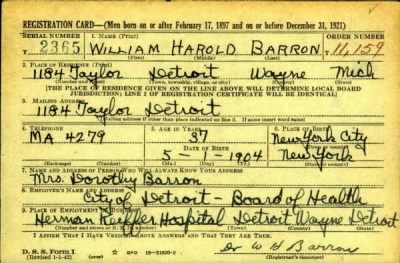 REGISTRATION CARD—(Men born on or after February 17, 1897 and on or before December 31, 1921)
SERIAL NUMBER 1. NAME (Print) ORDER NUMBER
2365 WILLIAM HAROLD BARRON 11,159
(First) (Middle) (Last)
2. PLACE OF RESIDENCE (Print)
1184 Taylor Detroit Wayne Mich
(Number and street) (Town, township, village, or city) (County) (State)
[THE PLACE OF RESIDENCE GIVEN ON THE LINE ABOVE WILL DETERMINE LOCAL BOARD
JURISDICTION; LINE 2 OF REGISTRATION CERTIFICATE WILL BE IDENTICAL]
3. MAILING ADDRESS
1184 Taylor Detroit
[Mailing address if other than place indicated on line 2. If same insert word same]
4. TELEPHONE 5. AGE IN YEARS 6. PLACE OF BIRTH
MA 4279 37 New York City
DATE OF BIRTH
5-1-1904 New York
(Exchange) (Number) (Mo.) (Day) (Yr.) (State or country)
7. NAME AND ADDRESS OF PERSON WHO WILL ALWAYS KNOW YOUR ADDRESS
Mrs. Dorothy Barron
8. EMPLOYER'S NAME AND ADDRESS
City of Detroit - Board of Health
9. PLACE OF EMPLOYMENT OR BUSINESS
Herman Kiefer Hospital Detroit Wayne Detroit
(Number and street or R. F. D. number) (Town) (County) (State)
I AFFIRM THAT I HAVE VERIFIED ABOVE ANSWERS AND THAT THEY ARE TRUE.
D. S. S. Form 1 GPO 16-21630-2 Dr W H Barron
(Revised 1-1-42) (over)